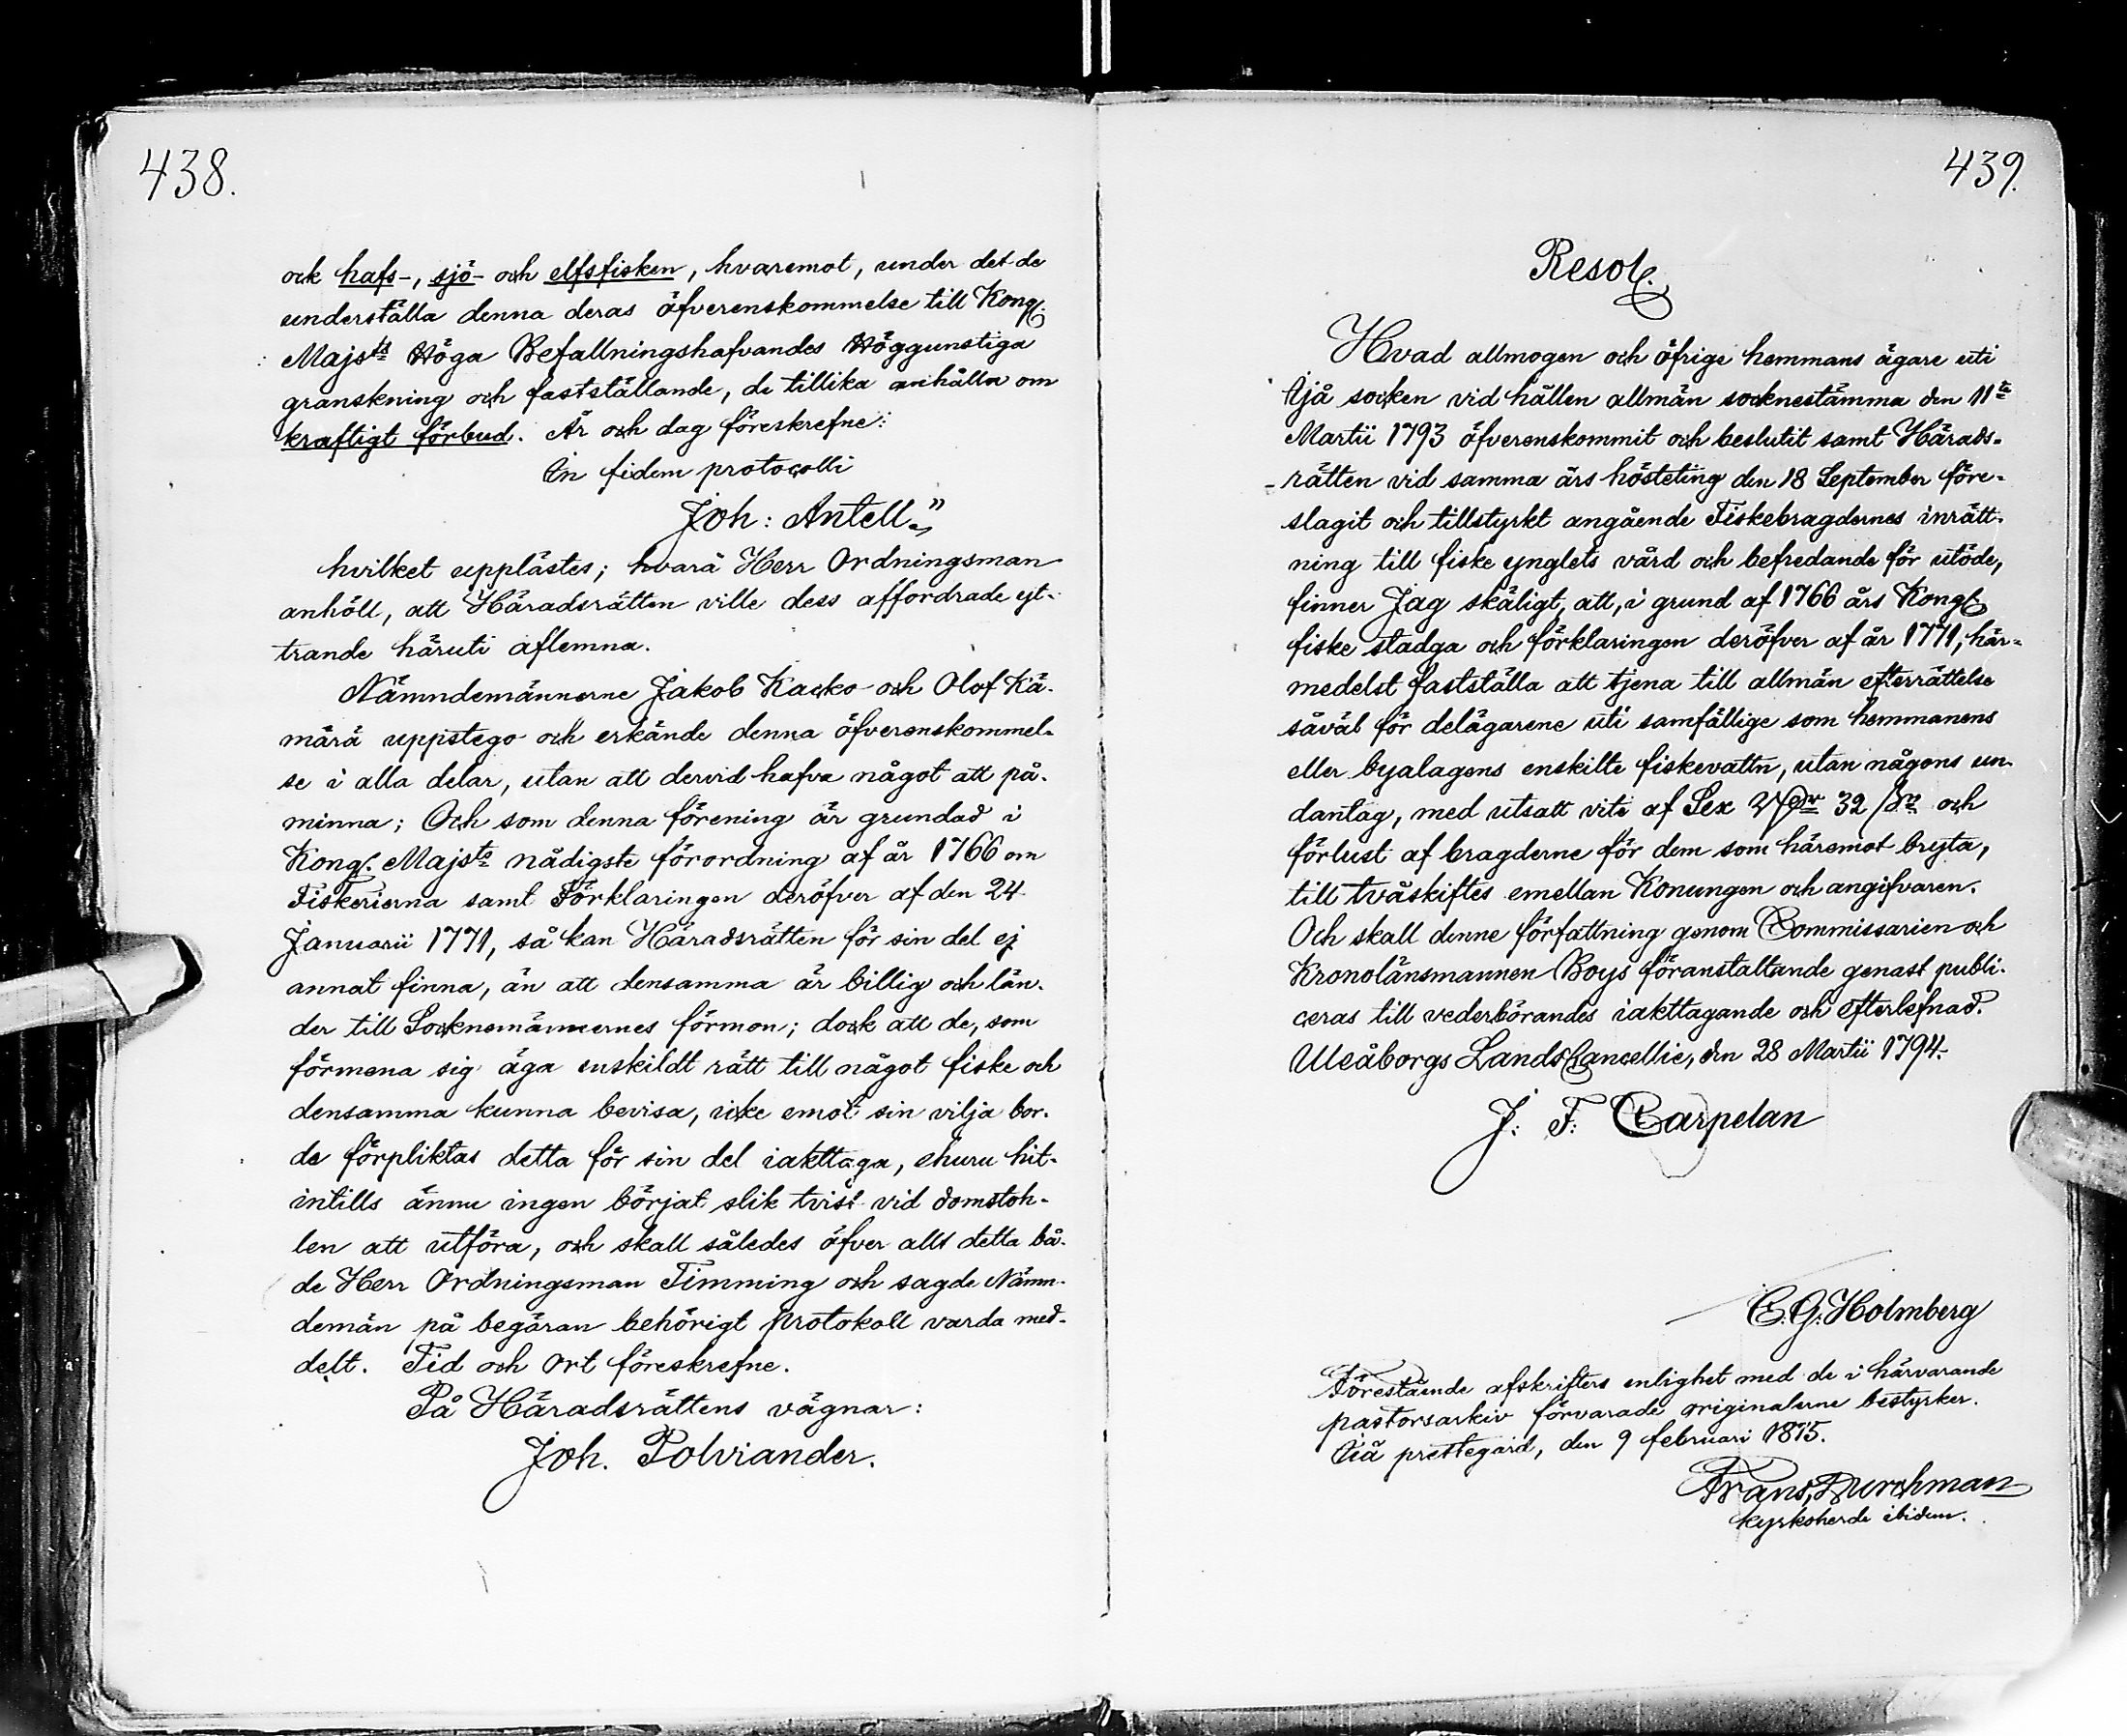 438.
ock hafs-, sjö- och elfsfisken, hvaremot, under det de
underställa denna deras öfverenskommelse till Kongl.
Majsts Höga Befallningshafvandes Höggunstiga
granskning och fastställande, de tillika anhålla om
kraftigt förbud. År och dag föreskrefne:
In fidem protocolli
Joh: Antell."
hvilket upplästes; hvarå Herr Ordningsman
anhöll, att Häradsrätten ville dess affordrade yt-
trande häruti aflemna.
Nämndemännerne Jakob Kacko och Olof Kä-
märä uppstego och erkände denna öfverenskommel-
se i alla delar, utan att dervid hafva något att på-
minna; Och som denna förening är grundad i
Kongl. Majsts nådigste förordning af år 1766 om
Fiskerierna samt Förklaringen deröfver af den 24
Januarii 1771, så kan Häradsrätten för sin del ej
annat finna, än att densamma är billig och län-
der till Socknemännernes förmon; dock att de, som
förmena sig äga enskildt rätt till något fiske och
densamma kunna bevisa, icke emot sin vilja bor-
de förpliktas detta för sin del iakttaga, ehuru hit-
intills ännu ingen börjat slik tvist vid domstoh-
len att utföra, och skall således öfver allt detta bå-
de Herr Ordningsman Timming och sagde Nämn-
demän på begäran behörigt protokoll varda med-
delt. Tid och Ort föreskrefne.
På Häradsrättens vägnar:
Joh. Polviander.
439.
Resol.
Hvad allmogen och öfrige hemmans ägare uti
Ijå socken vid hållen allmän socknestämma den 11te
Martii 1793 öfverenskommit och beslutit samt Härads-
rätten vid samma års hösteting den 18 September före-
slagit och tillstyrkt angående Fiskebragdernes inrätt-
ning till fiske ynglets vård och befredande för utöde,
finner Jag skäligt, att, i grund af 1766 års Kongl.
fiske stadga och förklaringen deröfver af år 1771, här-
medelst fastställa att tjena till allmän efterrättelse
såväl för delägarene uti samfällige som hemmanens
eller byalagens enskilte fiskevattn, utan någons un-
dantag, med utsatt vite af Sex 32 och
förlust af bragderne för dem som häremot bryta,
till tvåskiftes emellan Konungen och angifvaren.
Och skall denne författning genom Commissarien och
Kronolänsmannen Boijs föranstaltande genast publi-
ceras till vederbörandes iakttagande och efterlefnad.
Uleåborgs LandsCancellie, den 28 Martii 1794.
J: F: Carpelan
C. G. Holmberg
Förestående afskrifters enlighet med de i härvarande
pastorsarkiv förvarade originalerne bestyrker.
Iiå prestegård, den 9 februari 1875.
Frans Durchman
kyrkoherde ibidem.